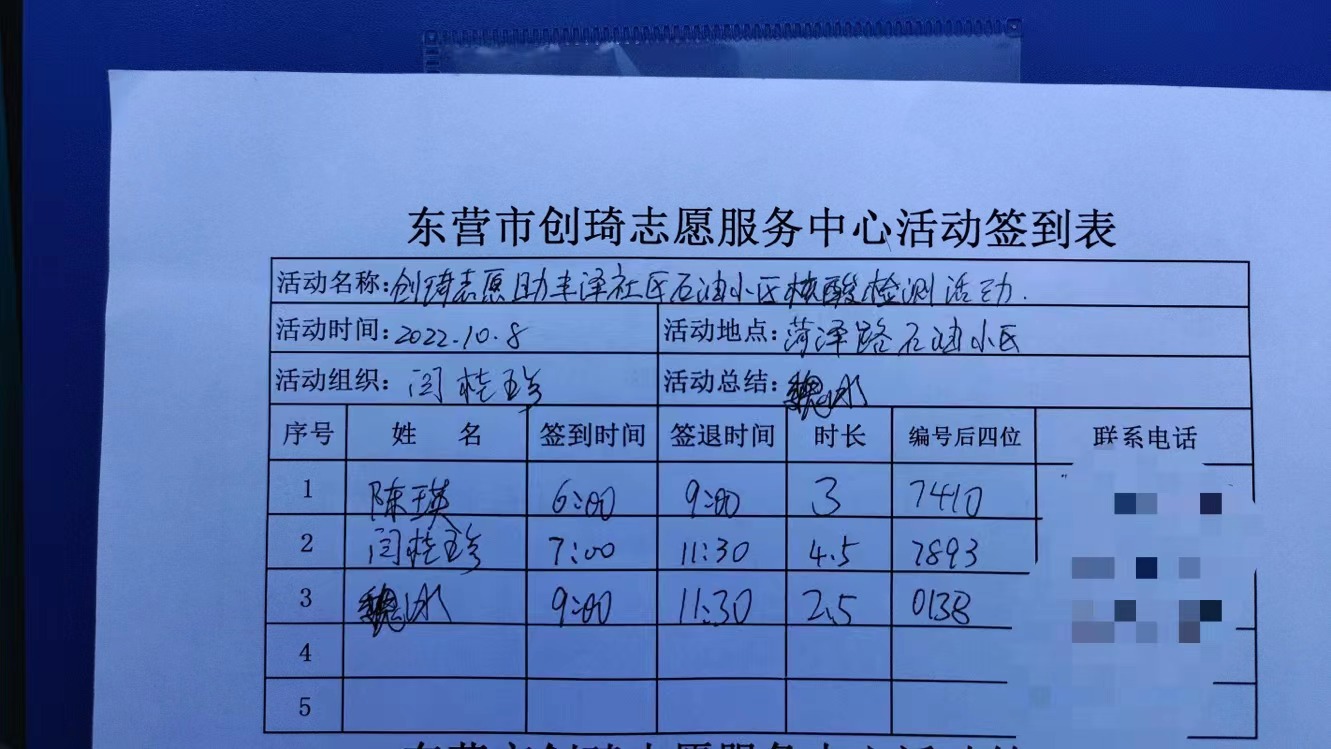 东营市创琦志愿服务中心活动签到表
活动名称:创琦志愿助丰泽社区石油小区核酸检测活动.
活动时间:2022.10.8 活动地点:菏泽路石油小区
活动组织:闫桂珍 活动总结:魏冰
序号 姓 名 签到时间 签退时间 时长 编号后四位 联系电话
1 陈瑛 6:00 9:00 3 7410
2 闫桂珍 7:00 11:30 4.5 7893
3 魏冰 9:00 11:30 2.5 013B
4
5
东营市创琦志愿服务中心活动签